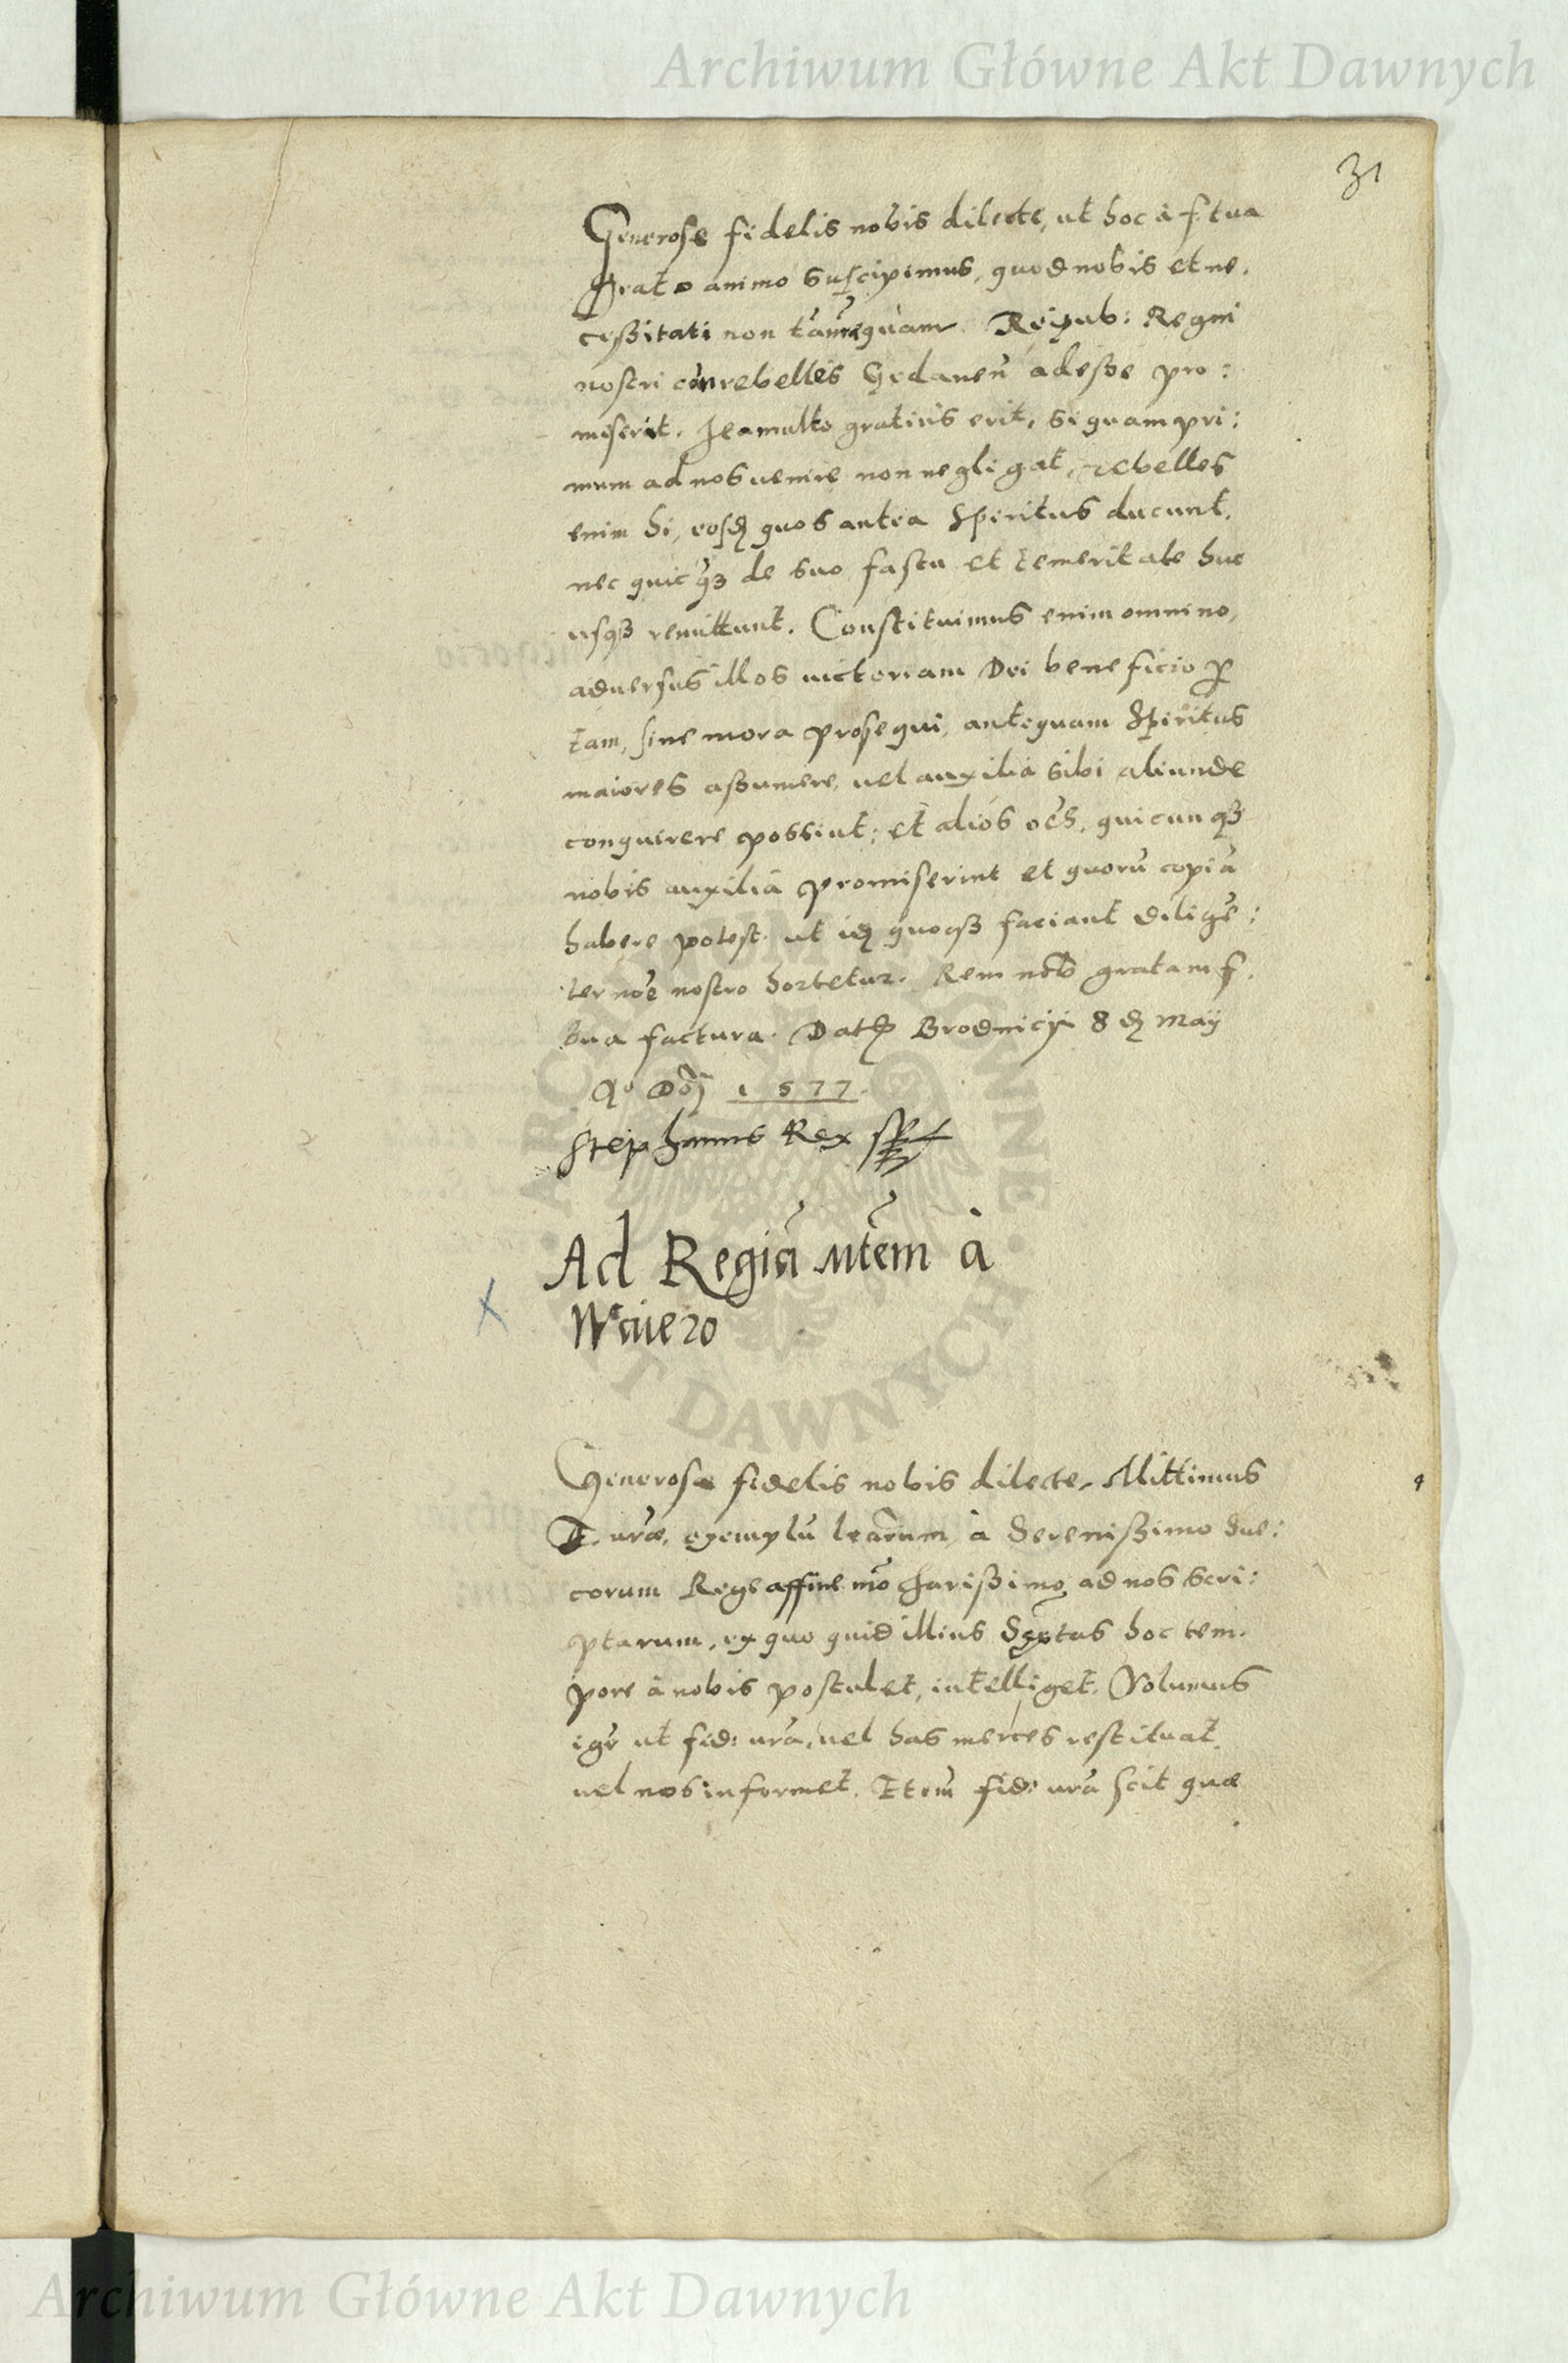 Archiwum Główne Akt Dawnych
31
Generose fidelis nobis dilecte, ut hoc à f. tua
grato animo suscipimus, quod nobis et ne,
ceßitati non Reipub: Regni
nostri rebelles adeße pro:
miserit. multo gratius erit, si quam pri:
mum ad nos uenire non negligat, rebelles
enim hi, eosdẽ quos antea Spiritus ducunt,
nec quicqȝ de suo fastu et temeritate huc
usqȝ remittunt. Constituimus enim omnino,
aduersus illos uictoriam Dei beneficio ꝑ
tam, sine mora prosequi, antequam Spiritus
maiores aßumere, uel auxilia sibi aliunde
conquirere possint; et alios oẽs, quicunqȝ
nobis auxilia promiserint et quorũ copiã
habere potest. ut idẽ quoqȝ faciant diligẽ:
ter nõe nostro hortetur. Rem nob gratam f.
sua factura. Brodnicij 8 May
Aº 1577
Stephanus Rex
Ad Regiã Mtem à
Weiero
Generose fidelis nobis dilecte. Mittimus
F. uræ, exemplũ learum à Serenißimo Sue:
corum Rege affine nrõ charißimo ad nos scri:
ptarum, ex quo quid illius hoc tem.
pore à nobis postulet, intelliget. Volumus
igr ut fid: urã, uel has merces restituat
uel nos informet. Item fid: urã scit quæ
ARCHIWUM GŁÓWNE AKT DAWNYCH
Archiwum Główne Akt Dawnych